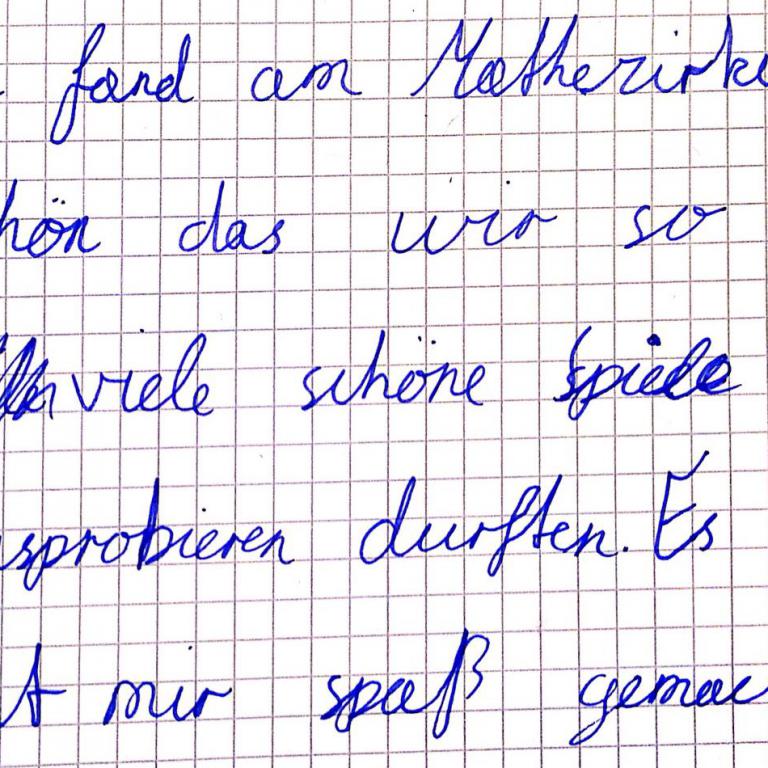 fand am Mathezirke
hön das wir so
viele schöne Spiele
sprobieren durften. Es
t mir spaß gemac